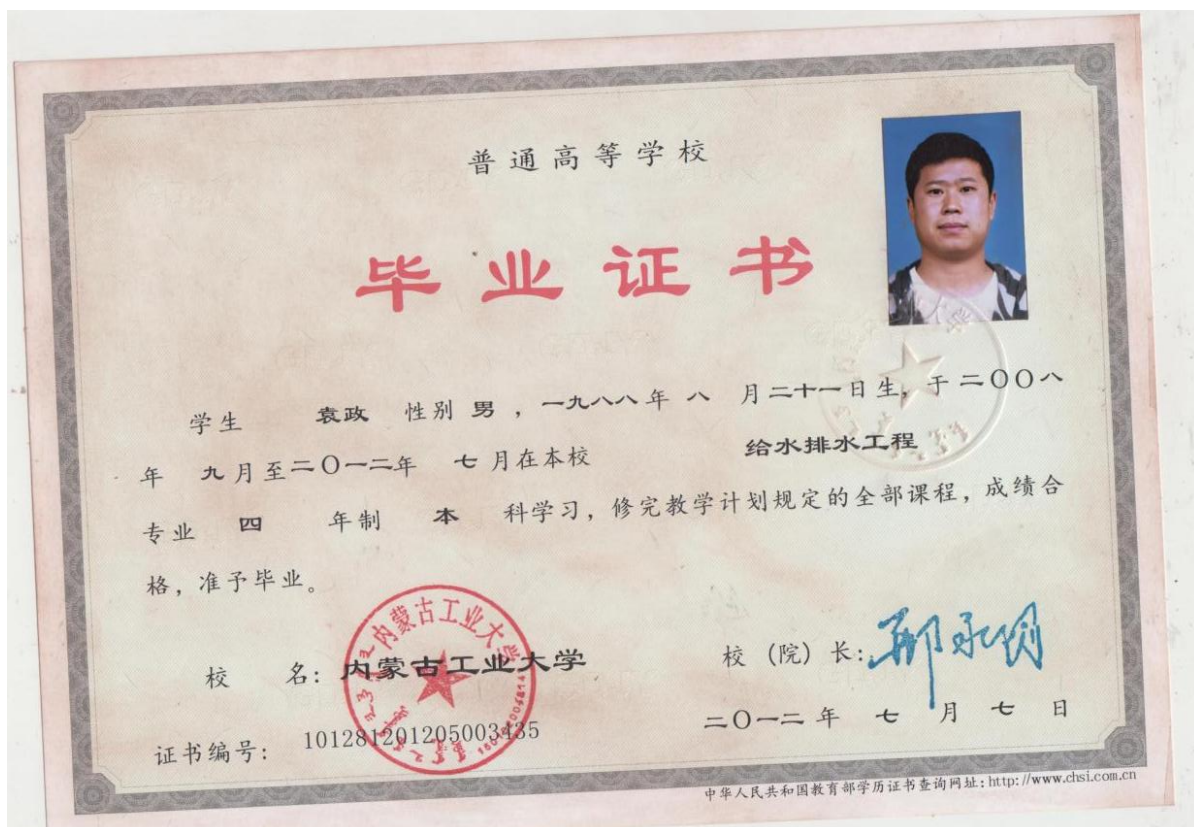 普通高等学校
毕业证书
学生 袁政 性别 男 ，一九八八年 八 月二十一日生，于二〇〇八
年 九月至二〇一二年 七月在本校 给水排水工程
专业 四 年制 本 科学习，修完教学计划规定的全部课程，成绩合
格，准予毕业。
内蒙古工业大学
校 名：内蒙古工业大学
校（院）长：
二〇一二年 七 月 七 日
证书编号： 101281201205003435
中华人民共和国教育部学历证书查询网址：http://www.chsi.com.cn